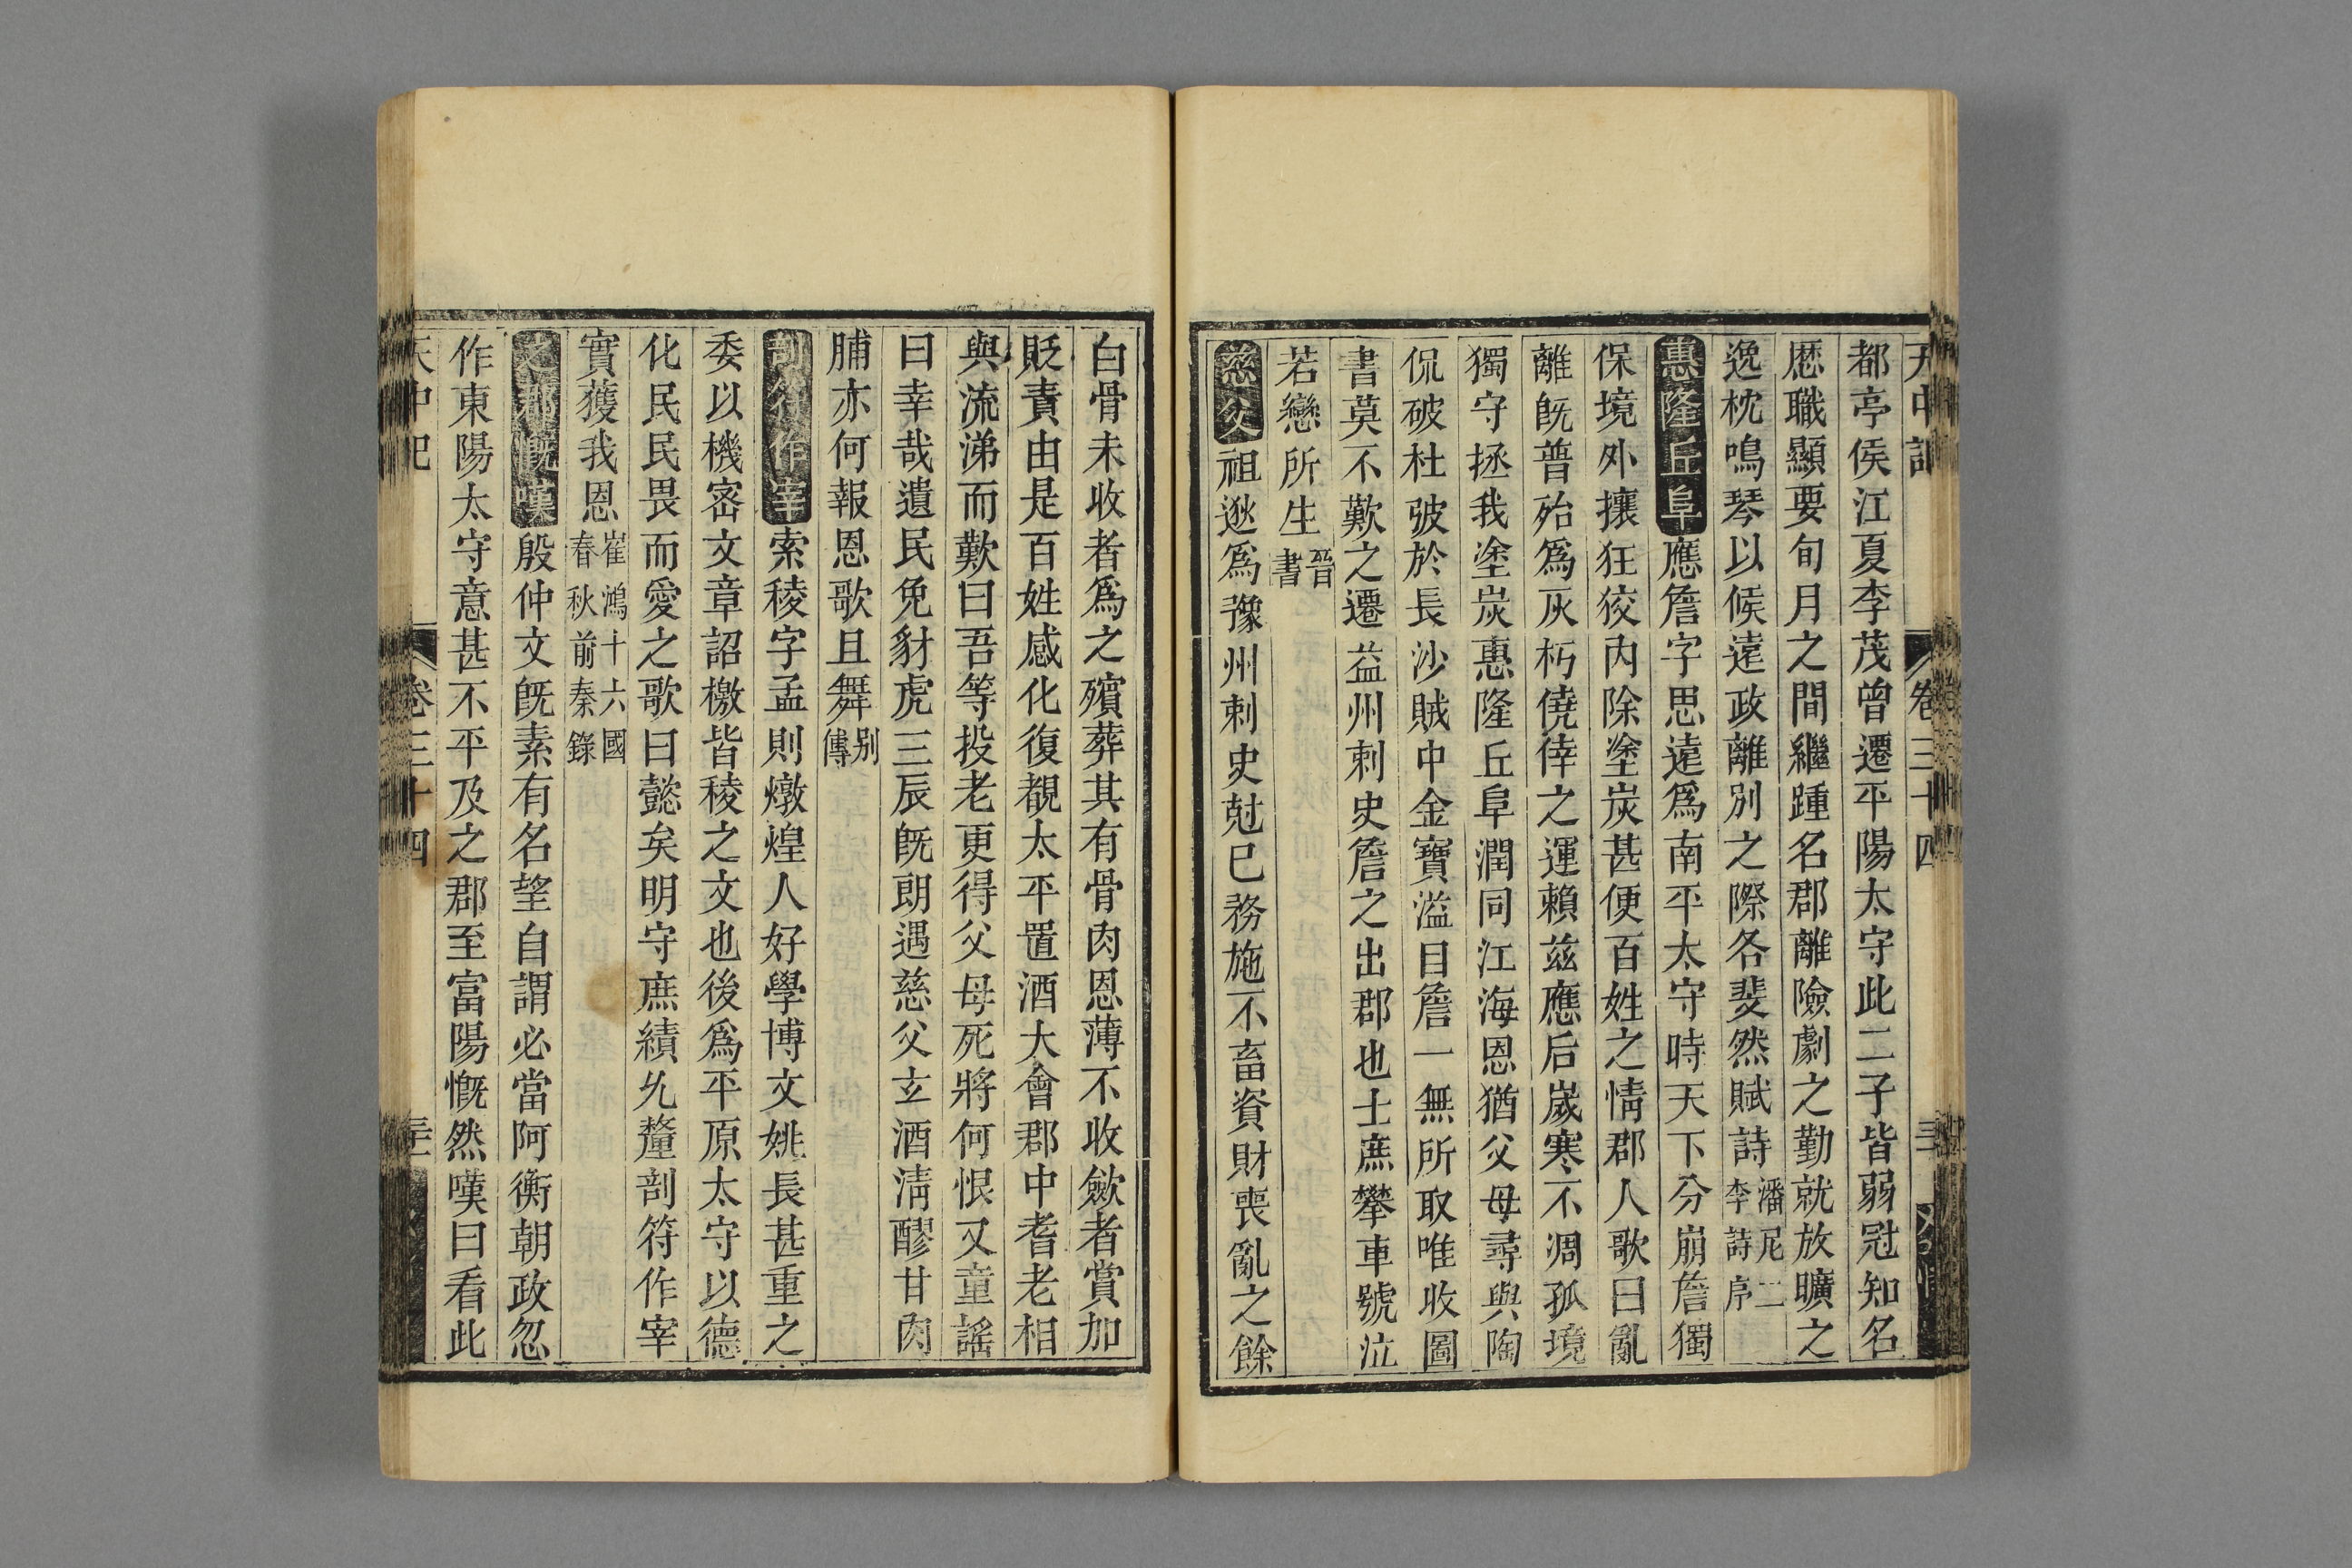 天中記 卷三十四
都亭侯江夏李茂曾遷平陽太守此二子皆弱冠知名
歷職顯要旬月之間繼踵名郡離險劇之勤就放曠之
逸枕鳴琴以候遠政離別之際各斐然賦詩潘尼二李詩序
惠隆丘阜應詹字思遠爲南平太守時天下分崩詹獨
保境外攘狂狡內除塗炭甚便百姓之情郡人歌曰亂
離旣普殆爲灰朽僥倖之運賴兹應后嵗寒不凋孤境
獨守拯我塗炭惠隆丘阜潤同江海恩猶父母尋與陶
侃破杜弢於長沙賊中金寶溢目詹一無所取唯收圖
書莫不歎之遷益州刺史詹之出郡也士庶攀車號泣
若戀所生晉書
慈父祖逖爲豫州刺史尅已務施不畜資財喪亂之餘
白骨未收者爲之殯葬其有骨肉恩薄不收斂者賞加
貶責由是百姓感化復覩太平置酒大會郡中耆老相
與流涕而歎曰吾等投老更得父母死將何恨又童謠
曰幸哉遺民免豺虎三辰旣朗遇慈父玄酒淸醪甘肉
脯亦何報恩歌且舞別傳
剖符作宰索稜字孟則燉煌人好學博文姚長甚重之
委以機宻文章詔檄皆稜之文也後爲平原太守以德
化民民畏而愛之歌曰懿矣明守庶績允釐剖符作宰
實獲我恩崔鴻十六國春秋前秦錄
之郡慨嘆殷仲文旣素有名望自謂必當阿衡朝政忽
作東陽太守意甚不平及之郡至富陽慨然嘆曰看此
天中記 卷三十四